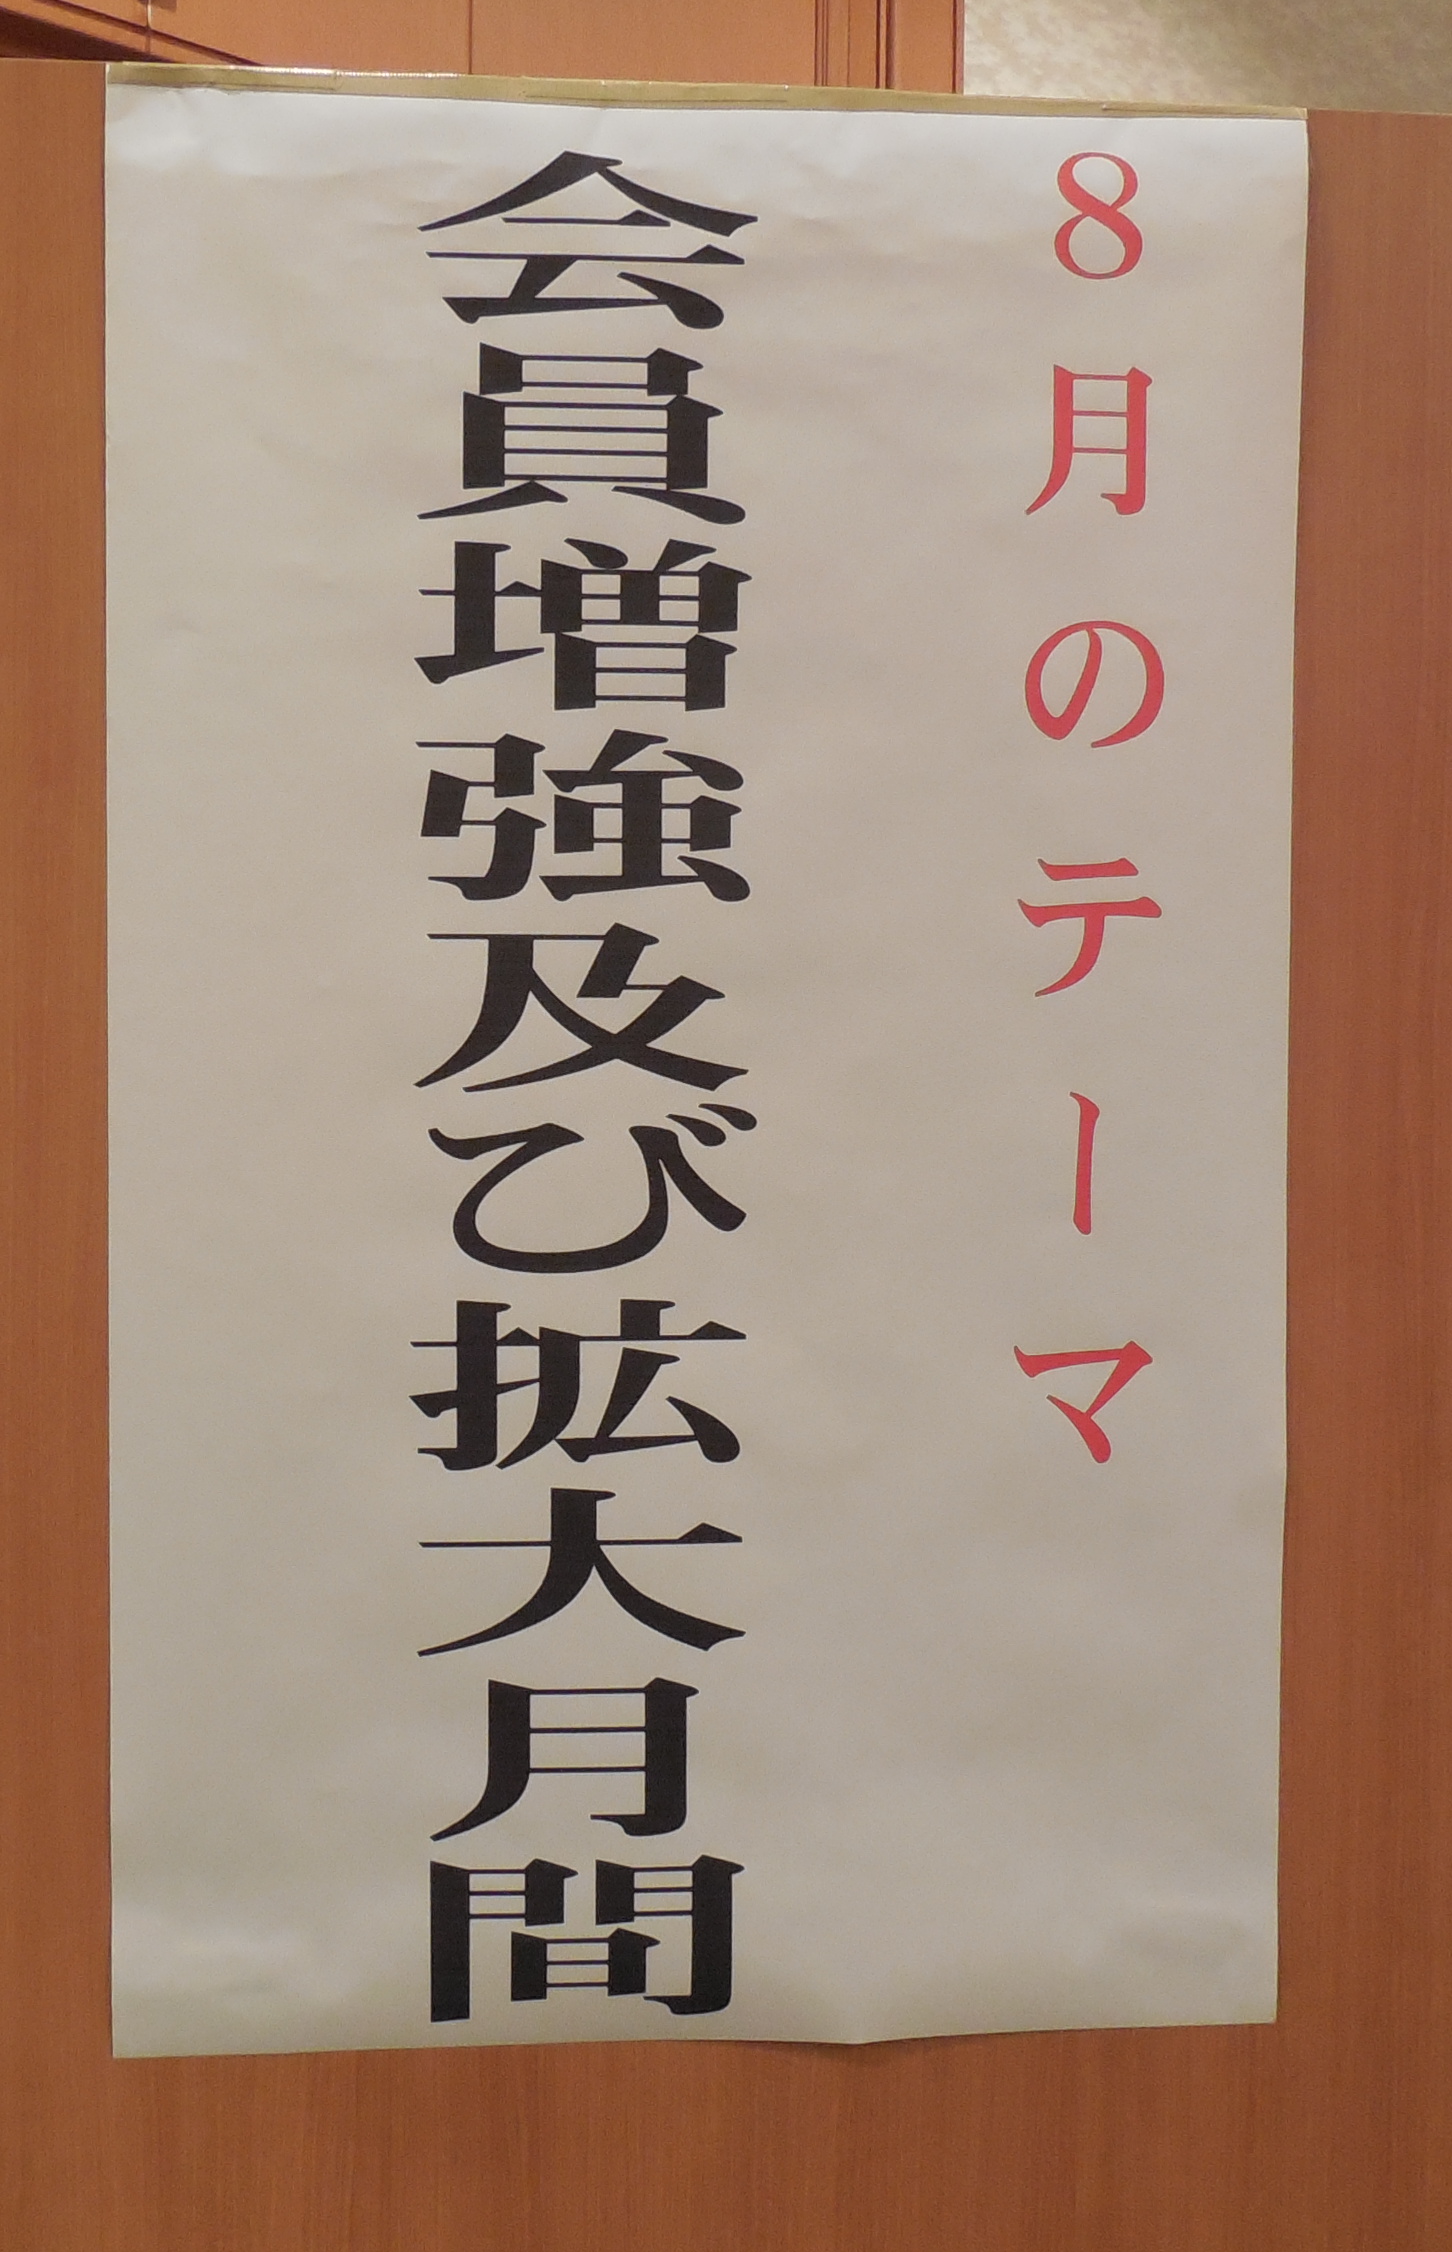 8月のテーマ
会員増強及び拡大月間